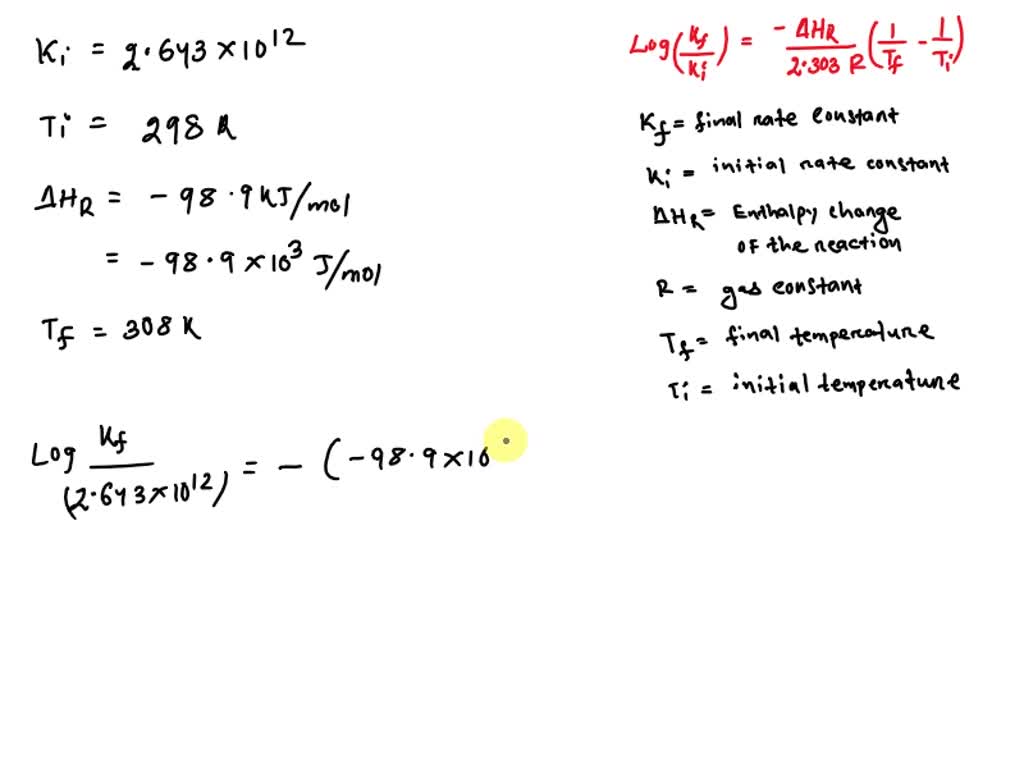 Ki = 2.643 × 10^12
Ti = 298 K
ΔHR = - 98.9 KJ/mol
= - 98.9 × 10^3 J/mol
Tf = 308 K
Log Kf/(2.643×10^12) = - (-98.9 × 10
Log(Kf/Ki) = -ΔHR/2.303 R (1/Tf - 1/Ti)
Kf = final rate constant
Ki = initial rate constant
ΔHR = Enthalpy change
of the reaction
R = gas constant
Tf = final temperature
Ti = initial temperature